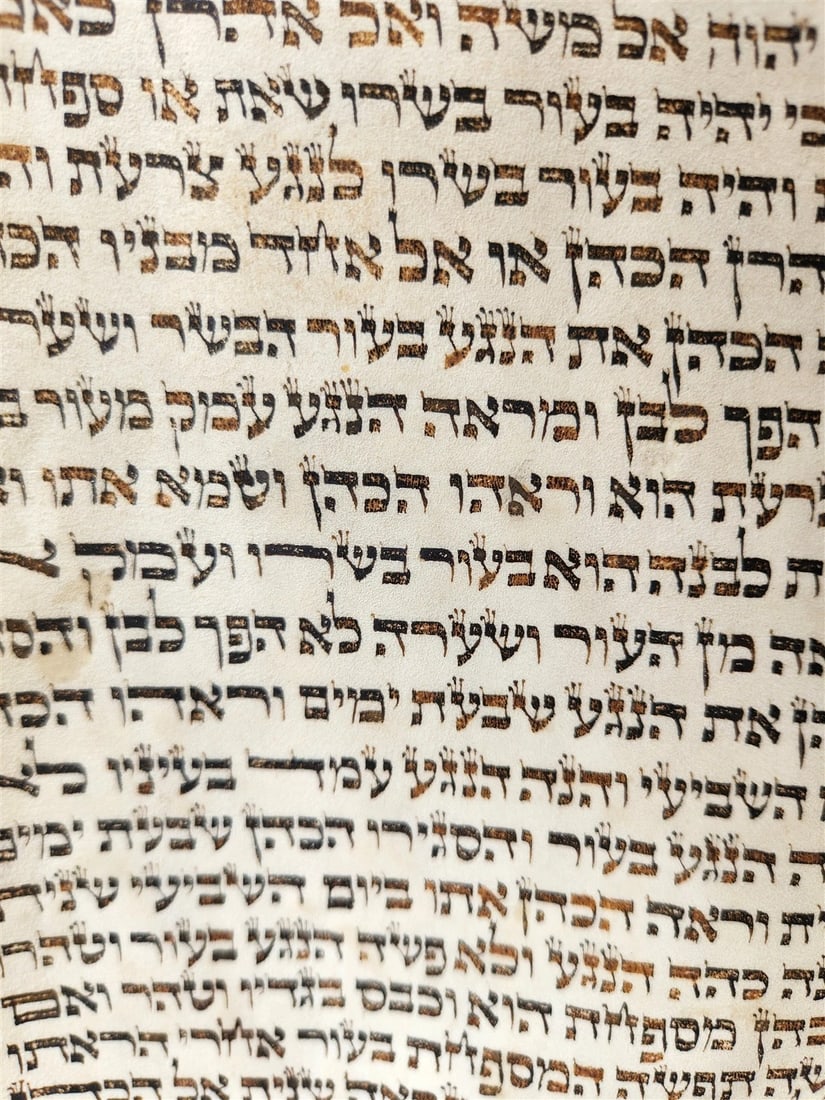 יהוה אל משה ואל אהרן לאמ
כי יהיה בעור בשרו שאת או ספח
והיה בעור בשרו לנגע צרעת וה
הרן הכהן או אל אחד מבניו הכה
הכהן את הנגע בעור הבשר ושער
הפך לבן ומראה הנגע עמק מעור ב
רעת הוא וראהו הכהן וטמא אתו ו
ת לבנה הוא בעור בשרו ועמק א
אה מן העור ושערה לא הפך לבן והס
הן את הנגע שבעת ימים וראהו הכה
השביעי והנה הנגע עמד בעיניו לא
ה הנגע בעור והסגירו הכהן שבעת ימים
ת וראה הכהן אתו ביום השביעי שנית
ה כהה הנגע ולא פשה הנגע בעור וטהרו
כהן מספחת הוא וכבס בגדיו וטהר ואם
שה תפשה המספחת בעור אחרי הראתו
אה שנית אל הכהן